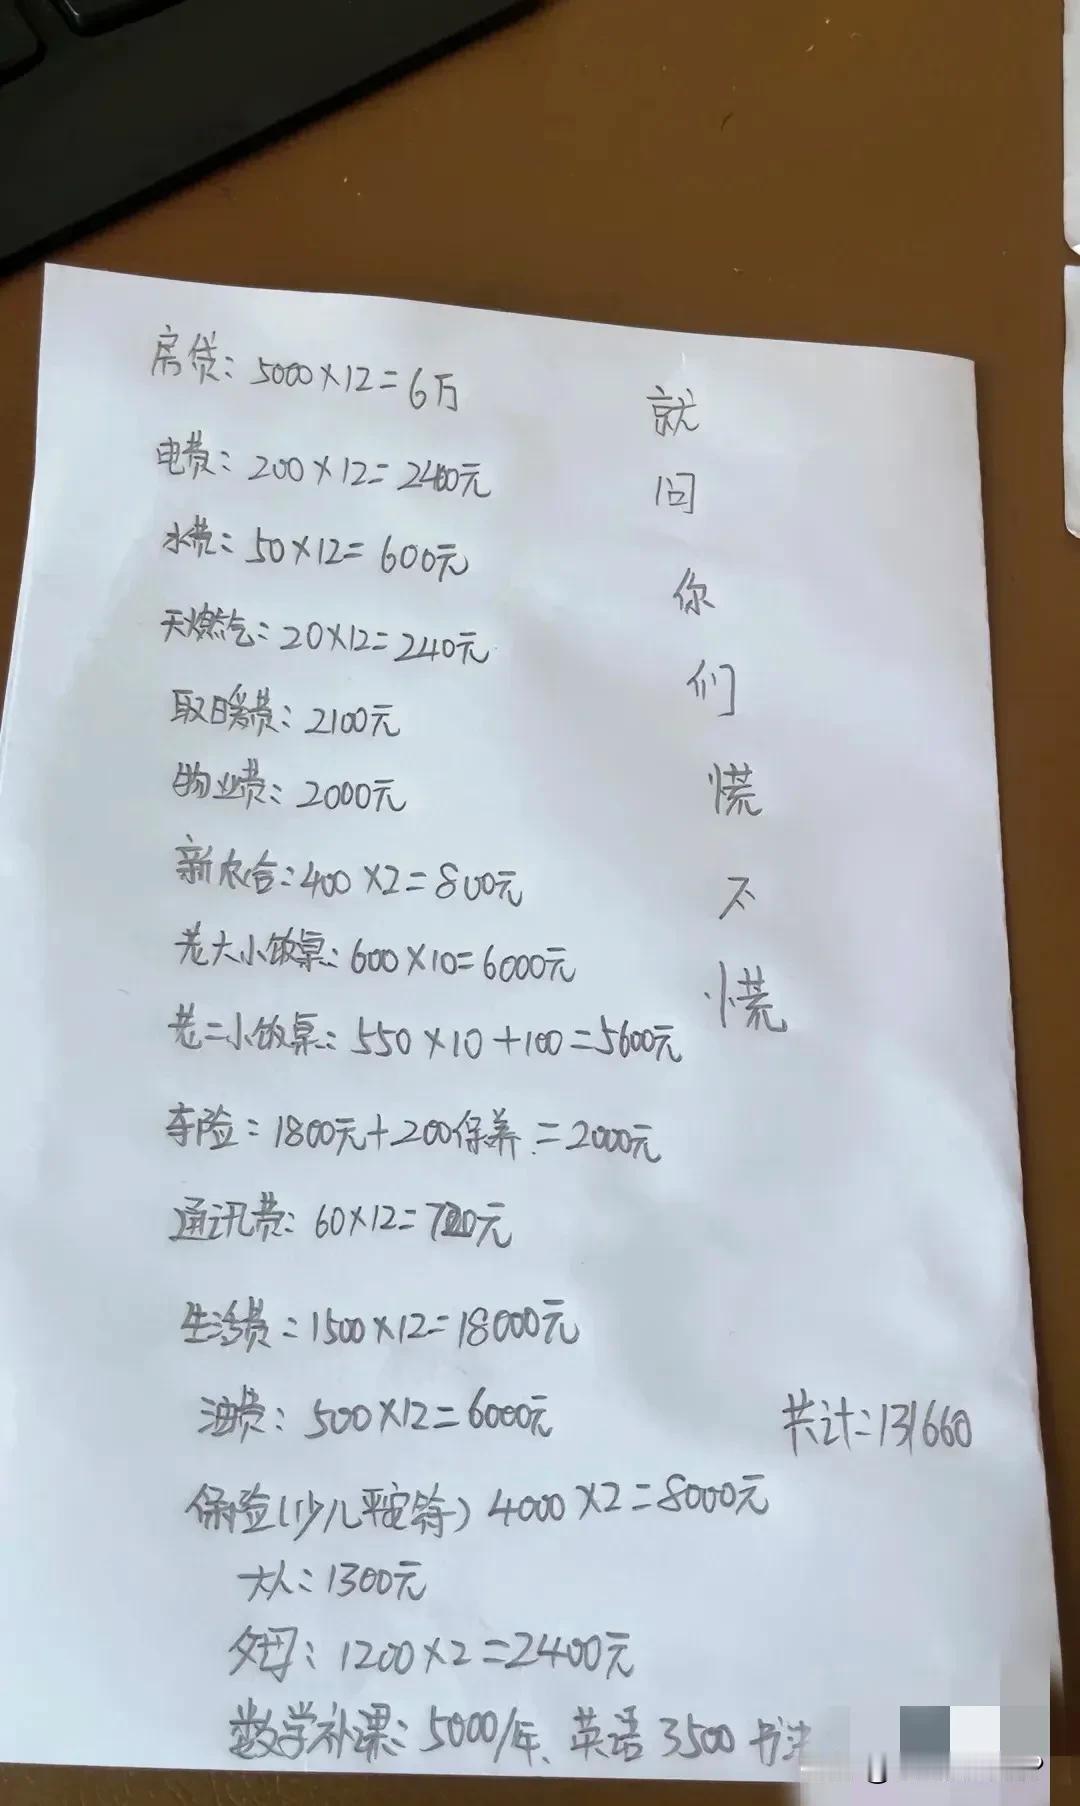 房贷：5000×12=6万
电费：200×12=2400元
水费：50×12=600元
天燃气：20×12=240元
取暖费：2100元
物业费：2000元
新农合：400×2=800元
老大小饭桌：600×10=6000元
老二小饭桌：550×10+100=5600元
车险：1800元+200保养=2000元
通讯费：60×12=720元
生活费：1500×12=18000元
油费：500×12=6000元
保险（少儿平安符）4000×2=8000元
大人：1300元
父母：1200×2=2400元
数学补课：5000/年、英语3500 书法
就
问
你
们
慌
不
慌
共计：131660